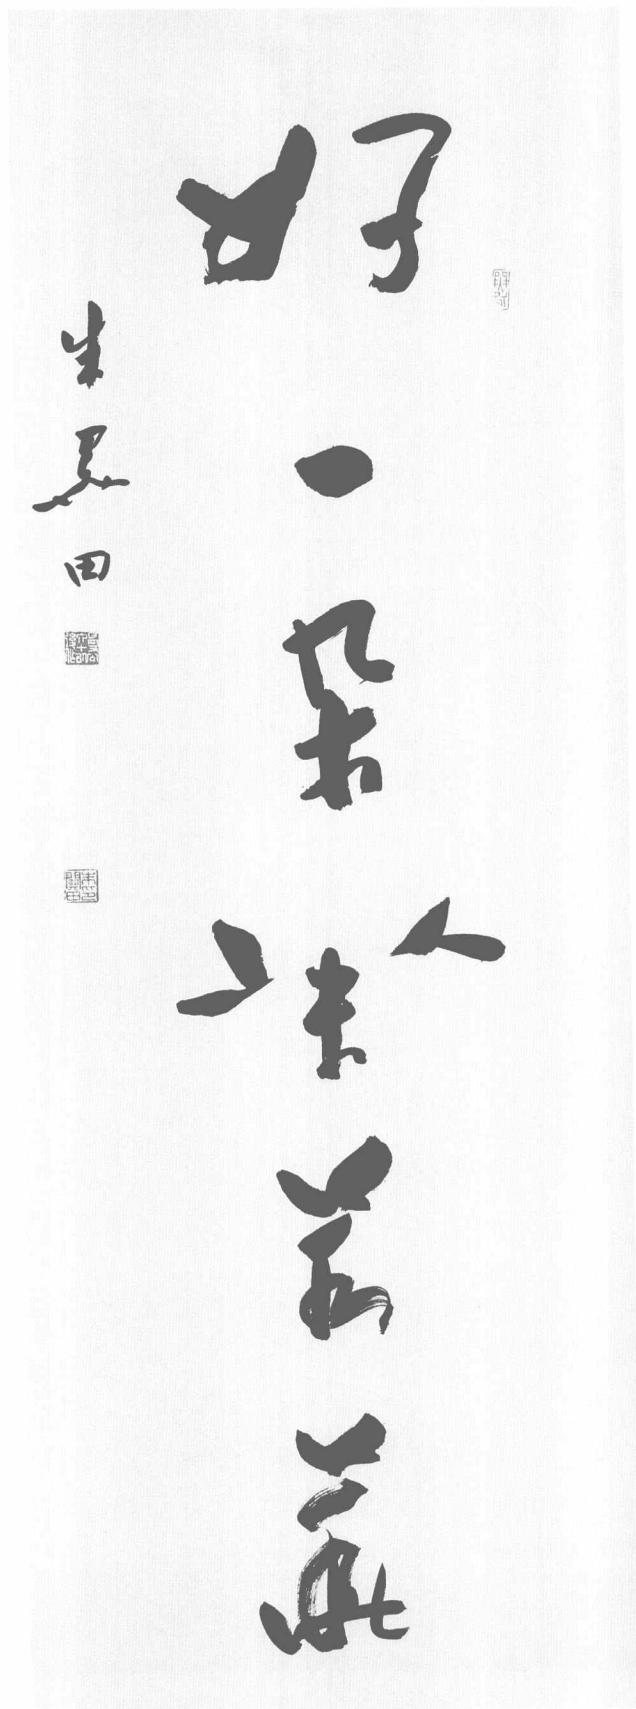 好一朵茉莉花
朱关田